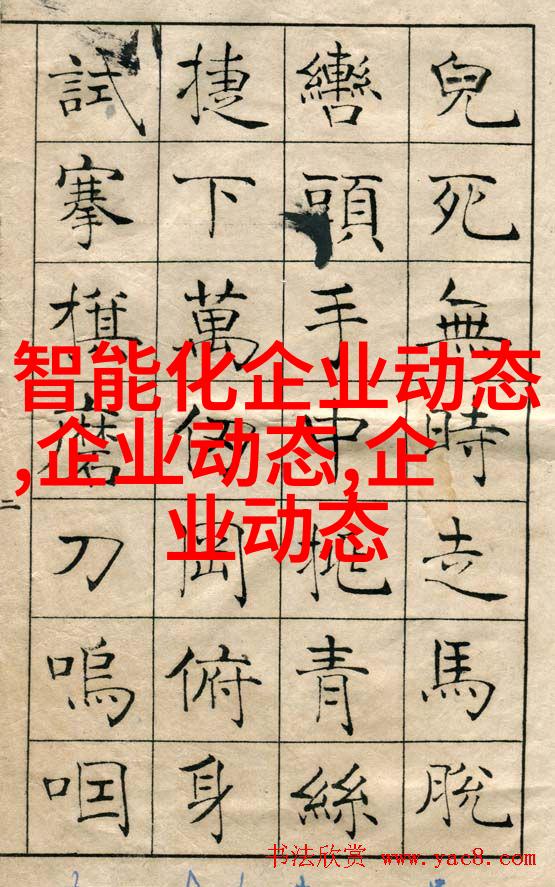 兒死無時走馬脫
轡頭手中挑青絲
捷下萬仞岡俯身
試搴旗磨刀嗚咽
二
智能化企业动态
,企业动态,企
业动态
书法欣赏 www.yac8.com